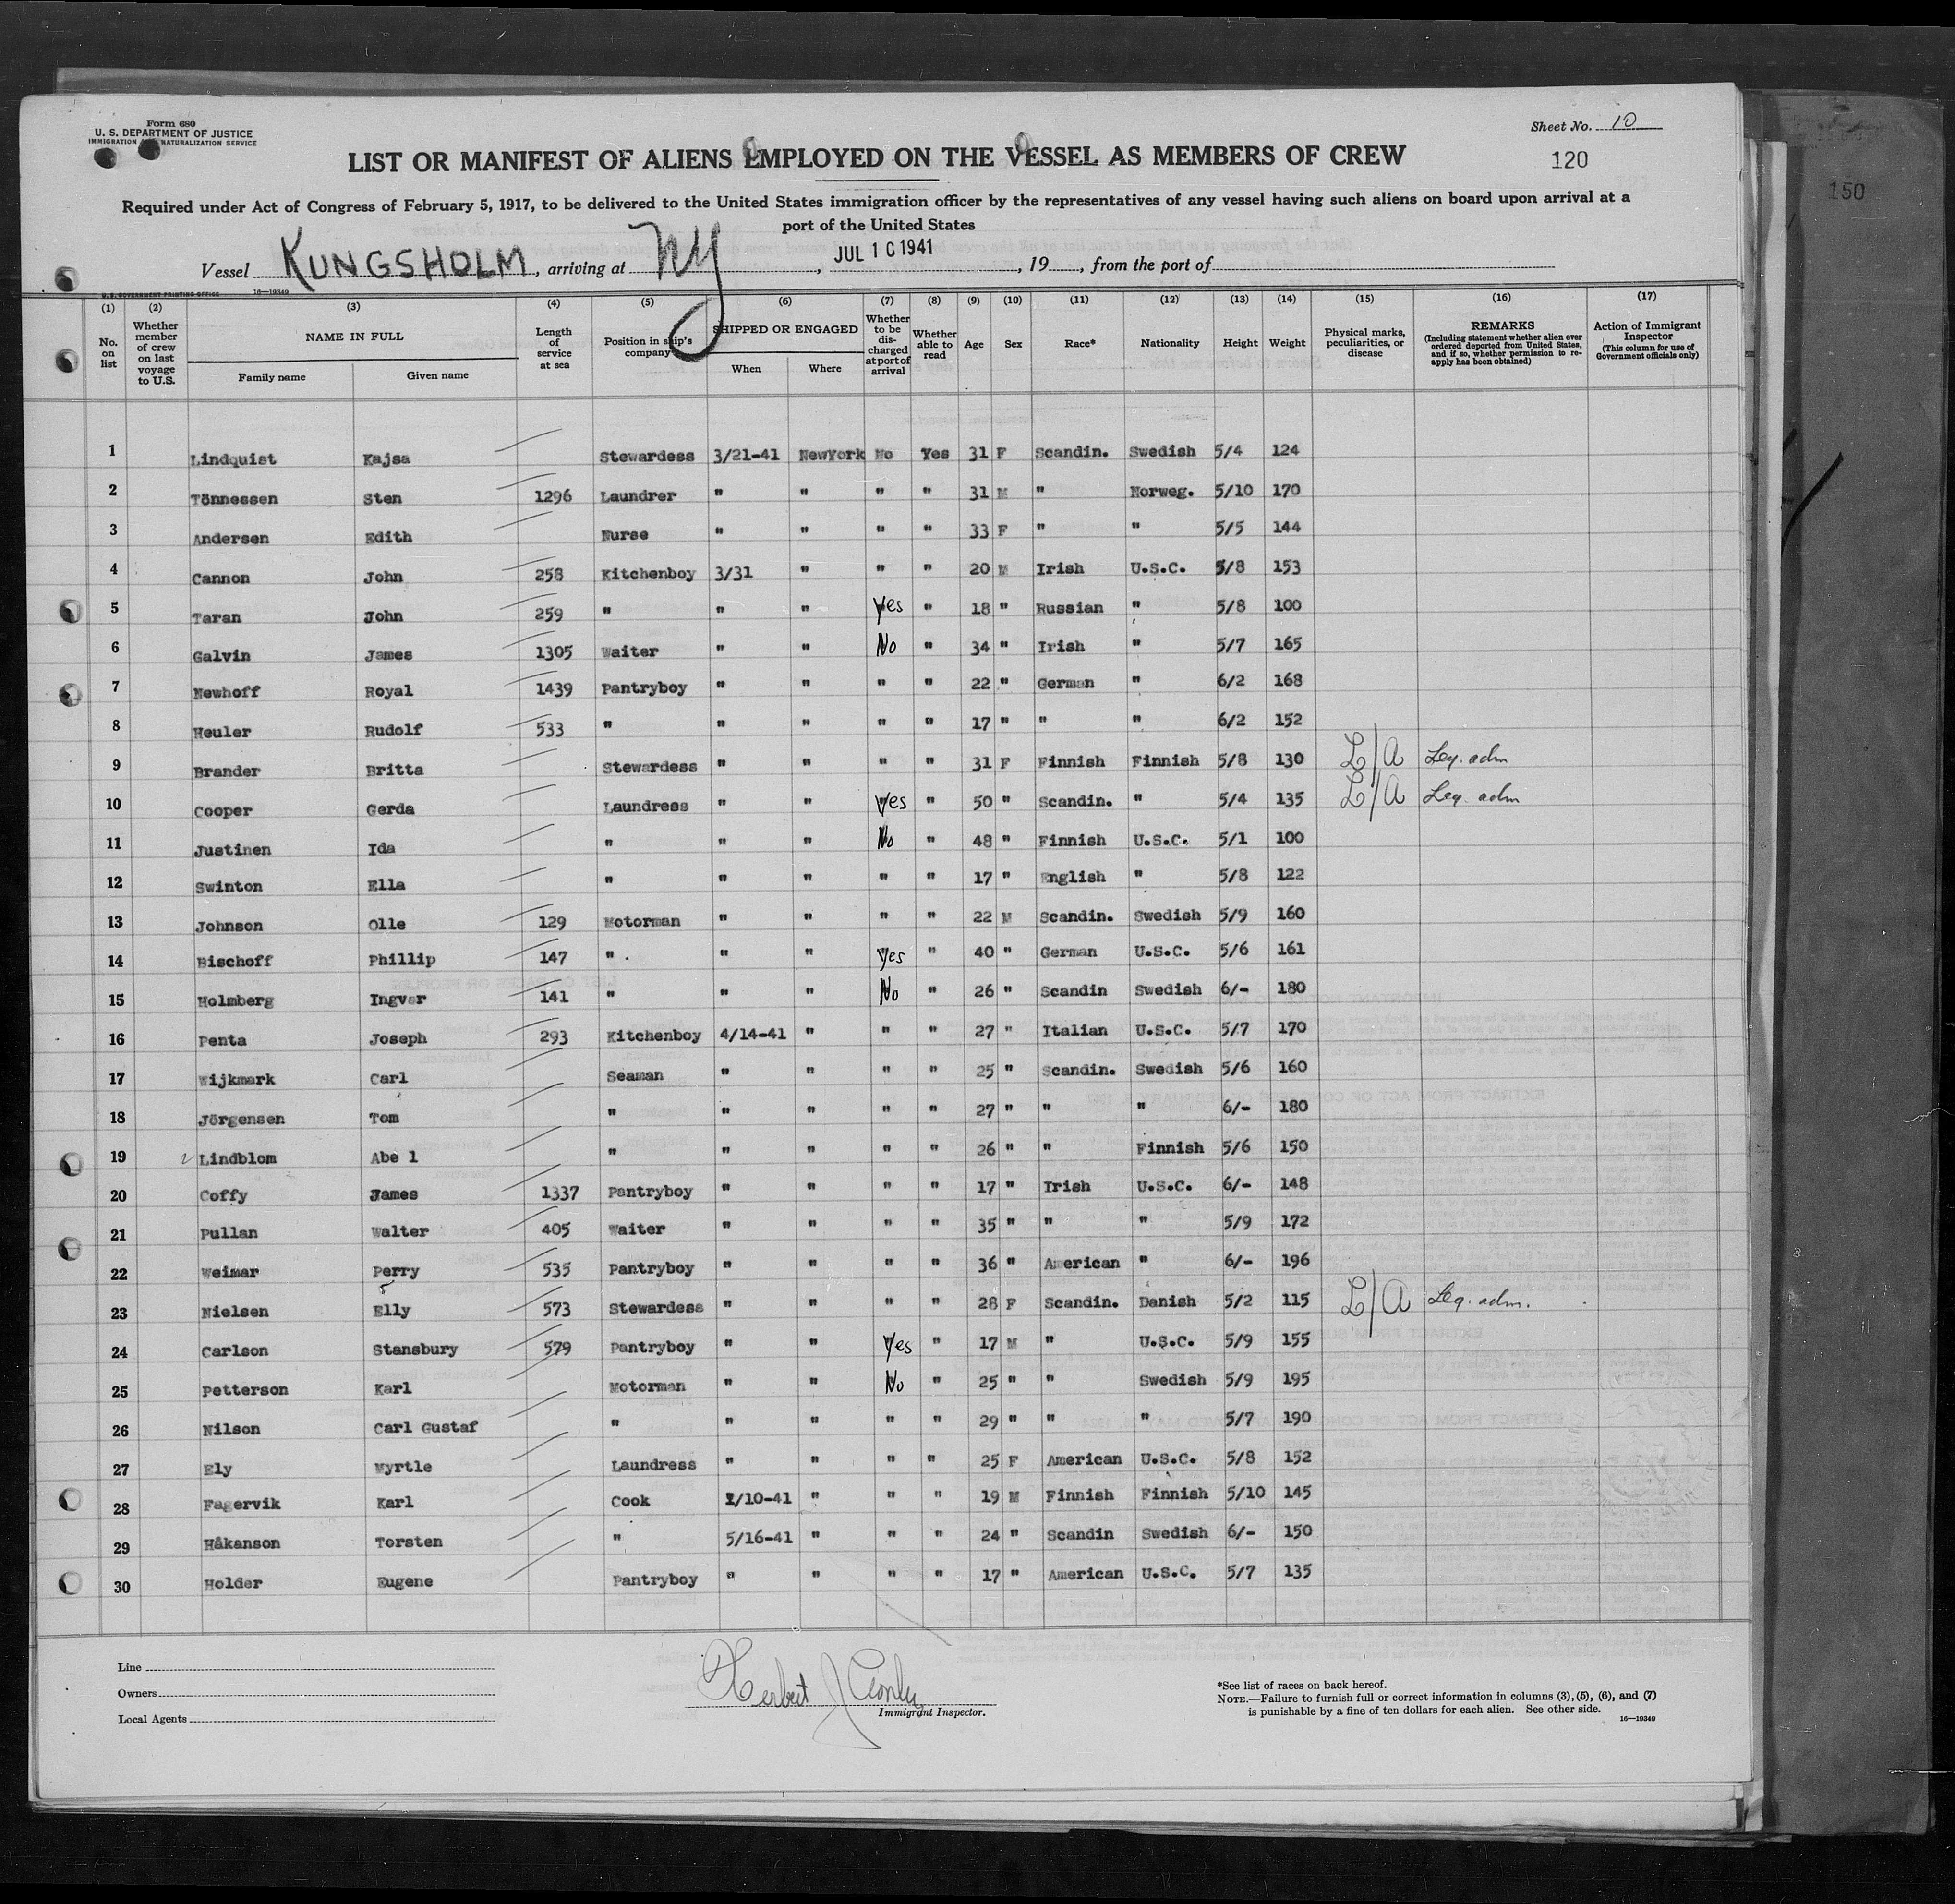 Form 680
U. S. DEPARTMENT OF JUSTICE
IMMIGRATION AND NATURALIZATION SERVICE
Sheet No. 10
120
150
LIST OR MANIFEST OF ALIENS EMPLOYED ON THE VESSEL AS MEMBERS OF CREW
Required under Act of Congress of February 5, 1917, to be delivered to the United States immigration officer by the representatives of any vessel having such aliens on board upon arrival at a
port of the United States
Vessel KUNGSHOLM, arriving at NY, JUL 10 1941, 19, from the port of
U. S. GOVERNMENT PRINTING OFFICE 16—19349
(1) (2) (3) (4) (5) (6) (7) (8) (9) (10) (11) (12) (13) (14) (15) (16) (17)
No. on list
Whether member of crew on last voyage to U.S.
NAME IN FULL
Family name Given name
Length of service at sea
Position in ship's company
SHIPPED OR ENGAGED
When Where
Whether to be discharged at port of arrival
Whether able to read
Age
Sex
Race*
Nationality
Height
Weight
Physical marks, peculiarities, or disease
REMARKS
(Including statement whether alien ever ordered deported from United States, and if so, whether permission to reapply has been obtained)
Action of Immigrant Inspector
(This column for use of Government officials only)
1 Lindquist Kajsa Stewardess 3/21-41 NewYork No Yes 31 F Scandin. Swedish 5/4 124
2 Tönnessen Sten 1296 Laundrer " " " " 31 M " Norweg. 5/10 170
3 Andersen Edith Nurse " " " " 33 F " " 5/5 144
4 Cannon John 258 Kitchenboy 3/31 " " " 20 M Irish U.S.C. 5/8 153
5 Taran John 259 " " " Yes " 18 " Russian " 5/8 100
6 Galvin James 1305 Waiter " " No " 34 " Irish " 5/7 165
7 Newhoff Royal 1439 Pantryboy " " " " 22 " German " 6/2 168
8 Heuler Rudolf 533 " " " " " 17 " " " 6/2 152
9 Brander Britta Stewardess " " " " 31 F Finnish Finnish 5/8 130 L/A Leg. adm
10 Cooper Gerda Laundress " " Yes " 50 " Scandin. " 5/4 135 L/A Leg. adm
11 Justinen Ida " " " No " 48 " Finnish U.S.C. 5/1 100
12 Swinton Ella " " " " " 17 " English " 5/8 122
13 Johnson Olle 129 Motorman " " " " 22 M Scandin. Swedish 5/9 160
14 Bischoff Phillip 147 " " " Yes " 40 " German U.S.C. 5/6 161
15 Holmberg Ingvar 141 " " " No " 26 " Scandin Swedish 6/- 180
16 Penta Joseph 293 Kitchenboy 4/14-41 " " " 27 " Italian U.S.C. 5/7 170
17 Wijkmark Carl Seaman " " " " 25 " Scandin. Swedish 5/6 160
18 Jörgensen Tom " " " " " 27 " " " 6/- 180
19 Lindblom Abe l " " " " " 26 " " Finnish 5/6 150
20 Coffy James 1337 Pantryboy " " " " 17 " Irish U.S.C. 6/- 148
21 Pullan Walter 405 Waiter " " " " 35 " " " 5/9 172
22 Weimar Perry 535 Pantryboy " " " " 36 " American " 6/- 196
23 Nielsen Elly 573 Stewardess " " " " 28 F Scandin. Danish 5/2 115 L/A Leg. adm.
24 Carlson Stansbury 579 Pantryboy " " Yes " 17 M " U.S.C. 5/9 155
25 Petterson Karl Motorman " " No " 25 " " Swedish 5/9 195
26 Nilson Carl Gustaf " " " " " 29 " " " 5/7 190
27 Ely Myrtle Laundress " " " " 25 F American U.S.C. 5/8 152
28 Fagervik Karl Cook /10-41 " " " 19 M Finnish Finnish 5/10 145
29 Håkanson Torsten " 5/16-41 " " " 24 " Scandin Swedish 6/- 150
30 Holder Eugene Pantryboy " " " " 17 " American U.S.C. 5/7 135
Line
Owners
Local Agents
Herbert J
Immigrant Inspector.
*See list of races on back hereof.
NOTE.—Failure to furnish full or correct information in columns (3), (5), (6), and (7)
is punishable by a fine of ten dollars for each alien. See other side.
16—19349